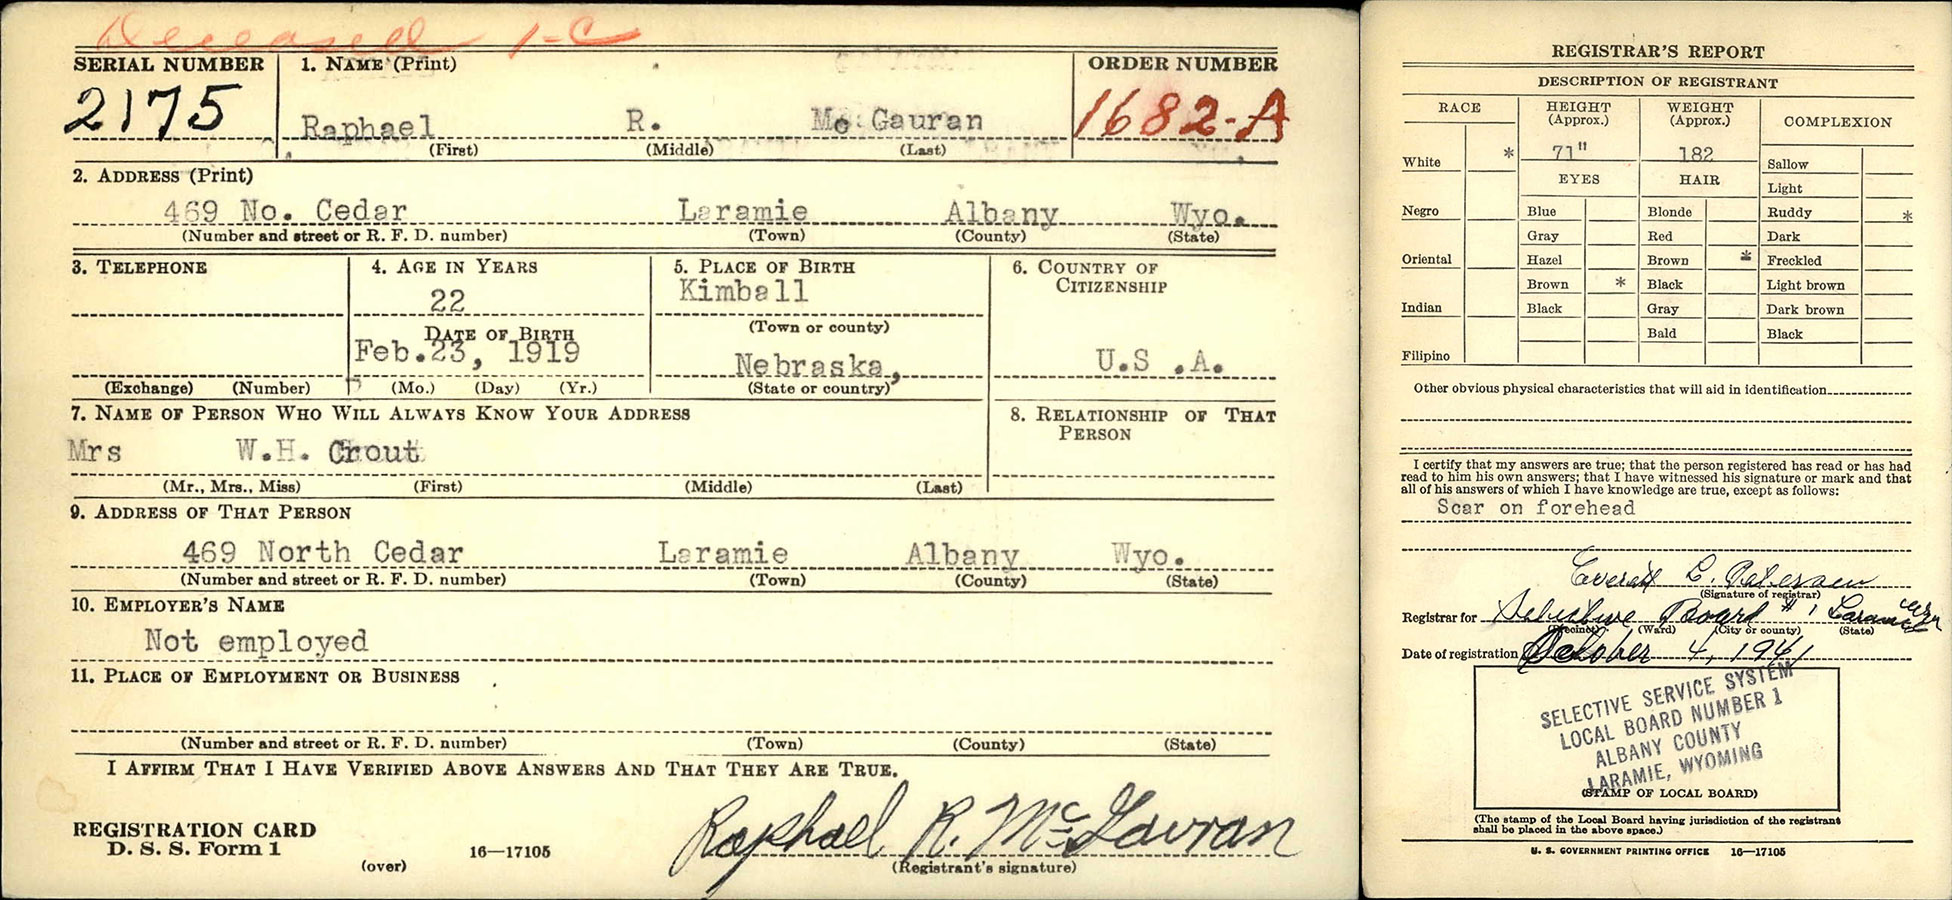 Deceased 1-C
SERIAL NUMBER
1. NAME (Print)
ORDER NUMBER
2175
Raphael R. Mc Gauran
1682-A
(First) (Middle) (Last)
2. ADDRESS (Print)
469 No. Cedar Laramie Albany Wyo.
(Number and street or R. F. D. number) (Town) (County) (State)
3. TELEPHONE
4. AGE IN YEARS
5. PLACE OF BIRTH
6. COUNTRY OF CITIZENSHIP
22
Kimball
(Town or county)
DATE OF BIRTH
Feb.23, 1919
Nebraska,
U.S .A.
(Exchange) (Number) (Mo.) (Day) (Yr.) (State or country)
7. NAME OF PERSON WHO WILL ALWAYS KNOW YOUR ADDRESS
8. RELATIONSHIP OF THAT PERSON
Mrs W.H. Crout
(Mr., Mrs., Miss) (First) (Middle) (Last)
9. ADDRESS OF THAT PERSON
469 North Cedar Laramie Albany Wyo.
(Number and street or R. F. D. number) (Town) (County) (State)
10. EMPLOYER'S NAME
Not employed
11. PLACE OF EMPLOYMENT OR BUSINESS
(Number and street or R. F. D. number) (Town) (County) (State)
I AFFIRM THAT I HAVE VERIFIED ABOVE ANSWERS AND THAT THEY ARE TRUE.
Raphael R. McGavran
REGISTRATION CARD
D. S. S. Form 1
(over)
16—17105
(Registrant's signature)
REGISTRAR'S REPORT
DESCRIPTION OF REGISTRANT
RACE
HEIGHT (Approx.)
WEIGHT (Approx.)
COMPLEXION
White * 71" 182 Sallow
EYES HAIR Light
Negro Blue Blonde Ruddy *
Gray Red Dark
Oriental Hazel Brown * Freckled
Brown * Black Light brown
Indian Black Gray Dark brown
Bald Black
Filipino
Other obvious physical characteristics that will aid in identification
I certify that my answers are true; that the person registered has read or has had
read to him his own answers; that I have witnessed his signature or mark and that
all of his answers of which I have knowledge are true, except as follows:
Scar on forehead
Everett L. Petersen
(Signature of registrar)
Registrar for Selective Board #1 Laramie Wyo
(Precinct) (Ward) (City or county) (State)
Date of registration October 4, 1941
SELECTIVE SERVICE SYSTEM
LOCAL BOARD NUMBER 1
ALBANY COUNTY
LARAMIE, WYOMING
(STAMP OF LOCAL BOARD)
(The stamp of the Local Board having jurisdiction of the registrant
shall be placed in the above space.)
U. S. GOVERNMENT PRINTING OFFICE 16—17105